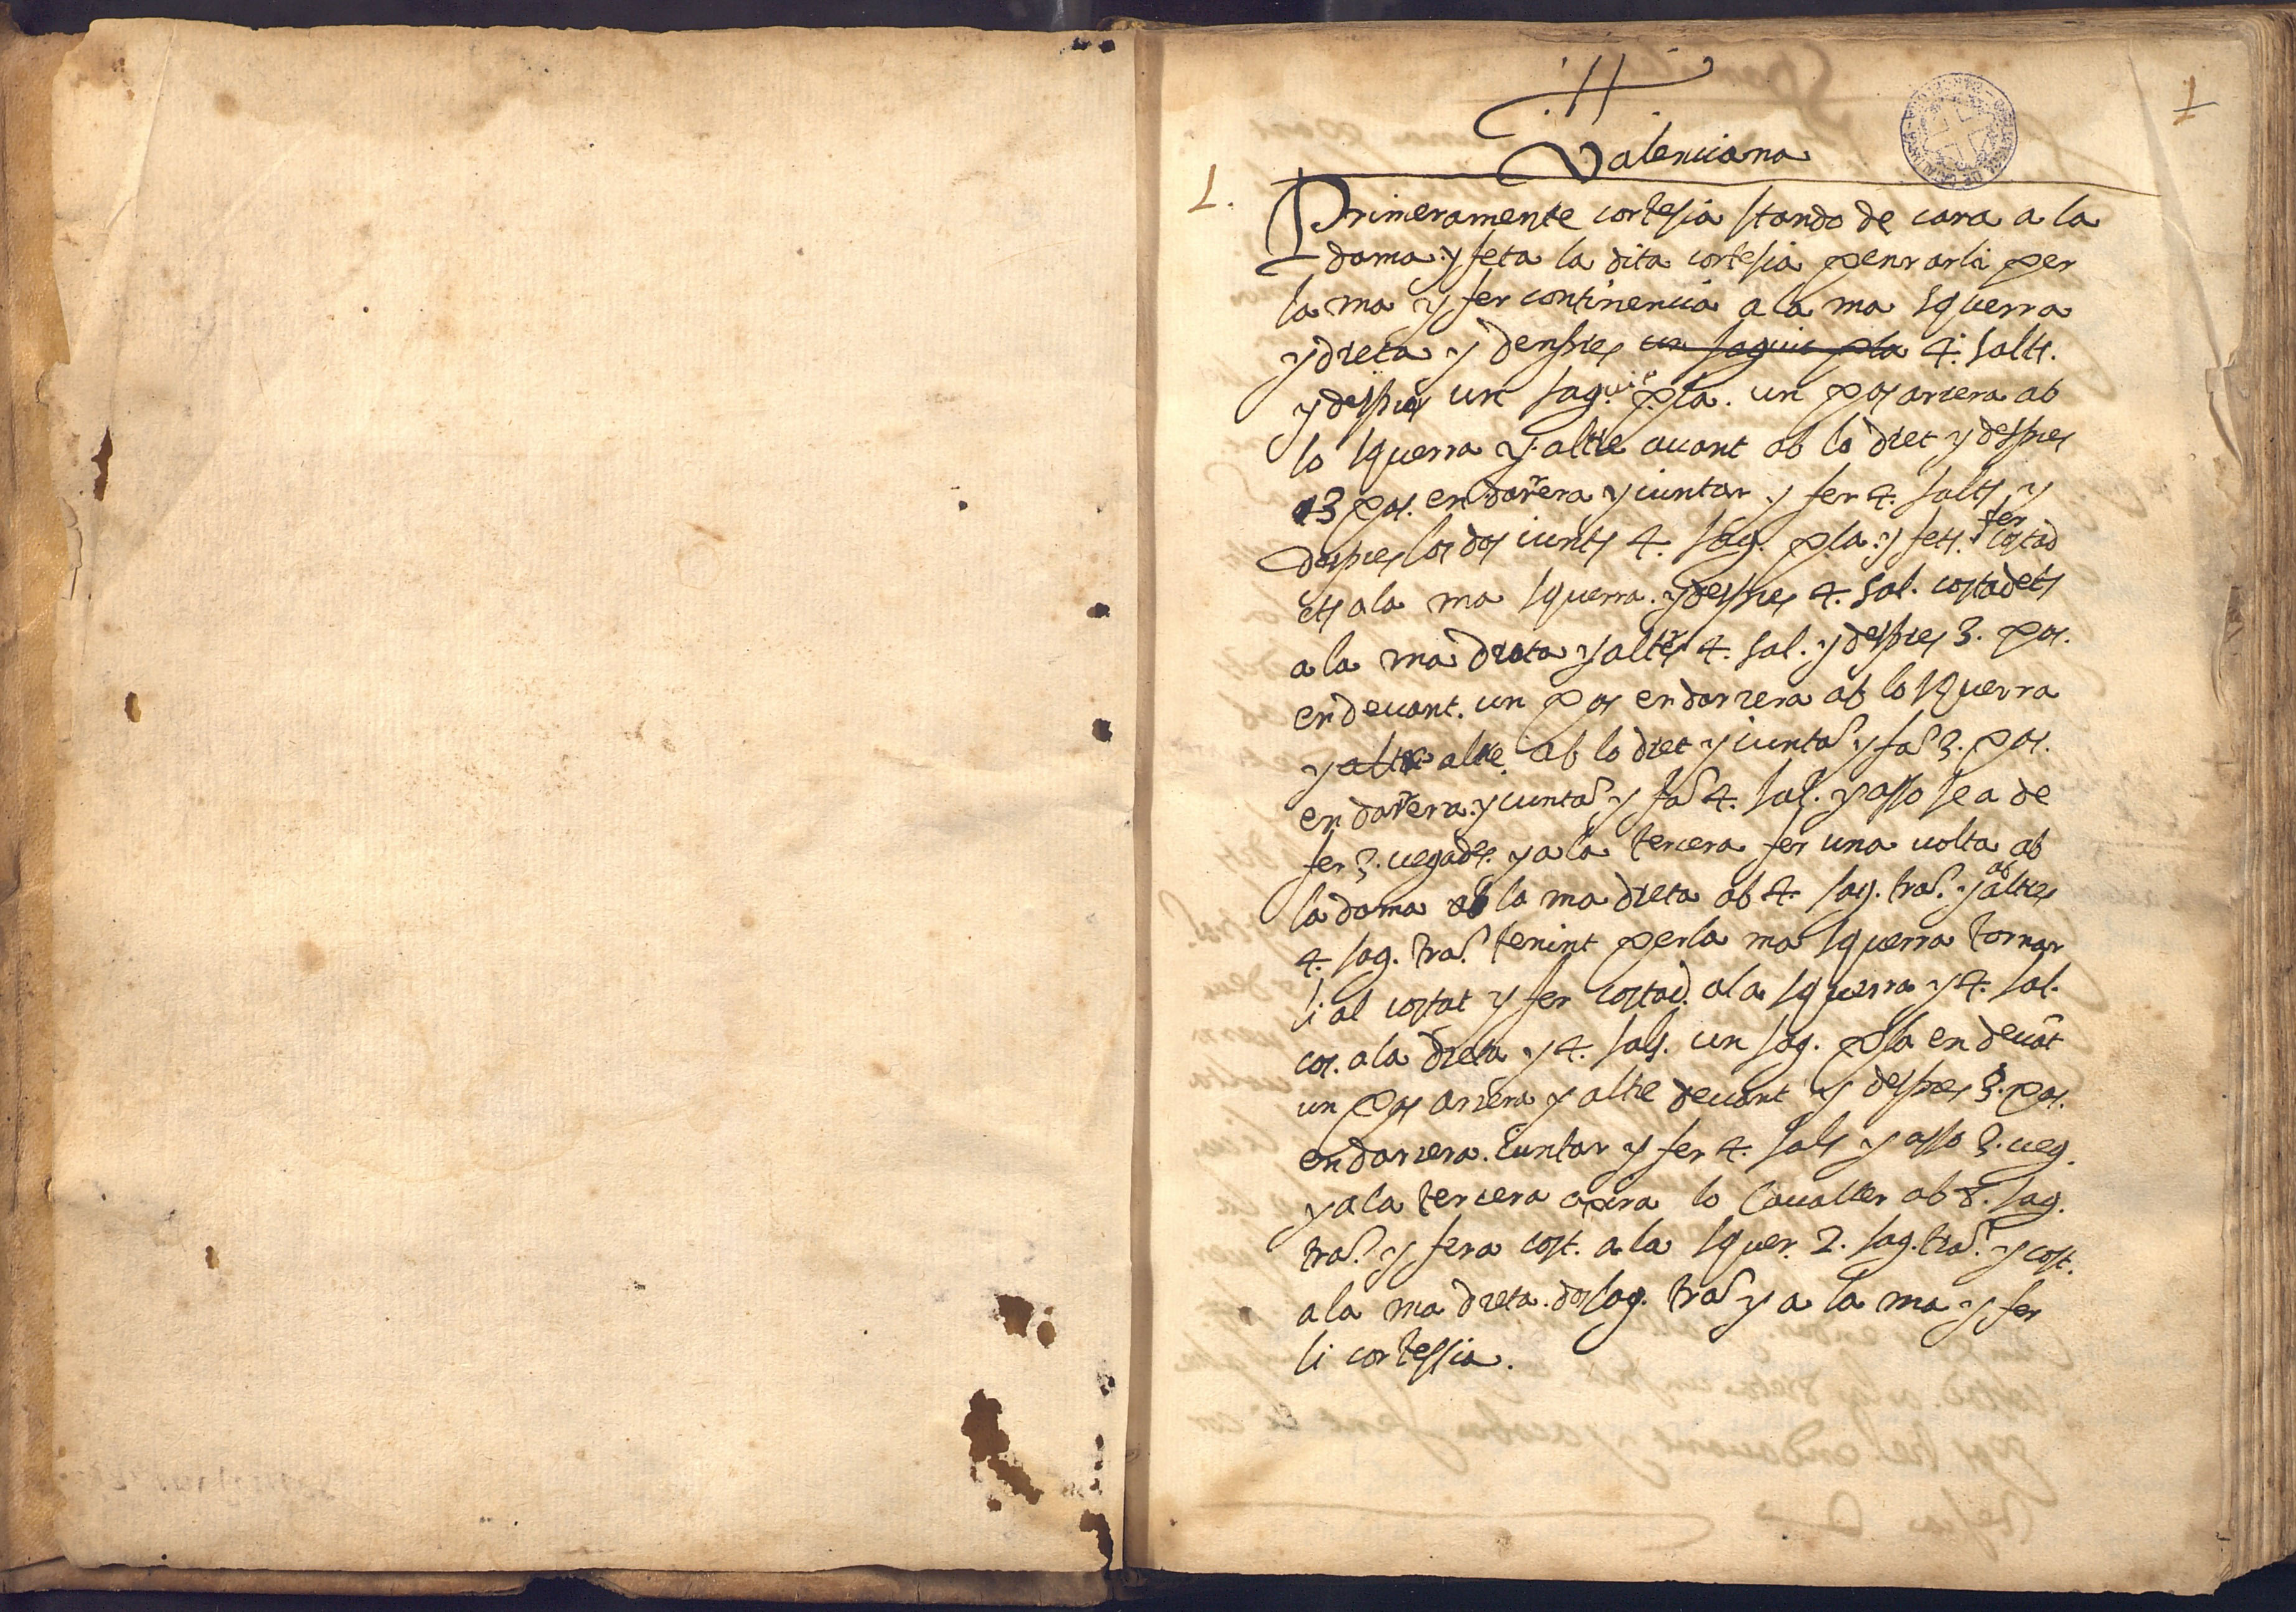 1
Valenciana
1.
Primeramente cortesia stando de cara a la
dama. y feta la dita cortesia penrarli per
la ma y fer continencia a la ma squerra
y dreta y denspres un seguit pla 4. salts.
y despres un seg.uit pla. un pas arrera ab
lo squerra y altre auant ab lo dret y despres
3 pas. endarrera y iuntar y fer 4. salts y
despres los dos iunts 4. seg. pla. y fets. fer costad
ets a la ma squerra. y despres 4. sal. costadets
a la ma dreta y altres 4. sal. y despres 3. pas.
en deuant. un pas endarrera ab lo squerra
y altre altre ab lo dret y iuntar y far 3. pas.
endarrera. y iuntar y far 4. sal. y asso se a de
fer 3. uegades. y a la tercera fer una uolta ab
la dama ab la ma dreta ab 4. seg. tra. y ab altres
4. seg. tra. tenint per la ma squerra tornar
li al costat y fer costad. a la squerra y 4. sal.
cos. a la dreta y 4. sals. un seg. pla en deuāt
un pas arrera y altre deuant y despres 3. pas.
endarrera. iuntar y fer 4. sals y asso 3. ueg.
y a la tercera axira lo Caualler ab 8. seg.
tra. y fera cost. a la squer. 2. seg. tra. y cost.
a la ma dreta. dos seg. tra y a la ma y fer
li cortessia.